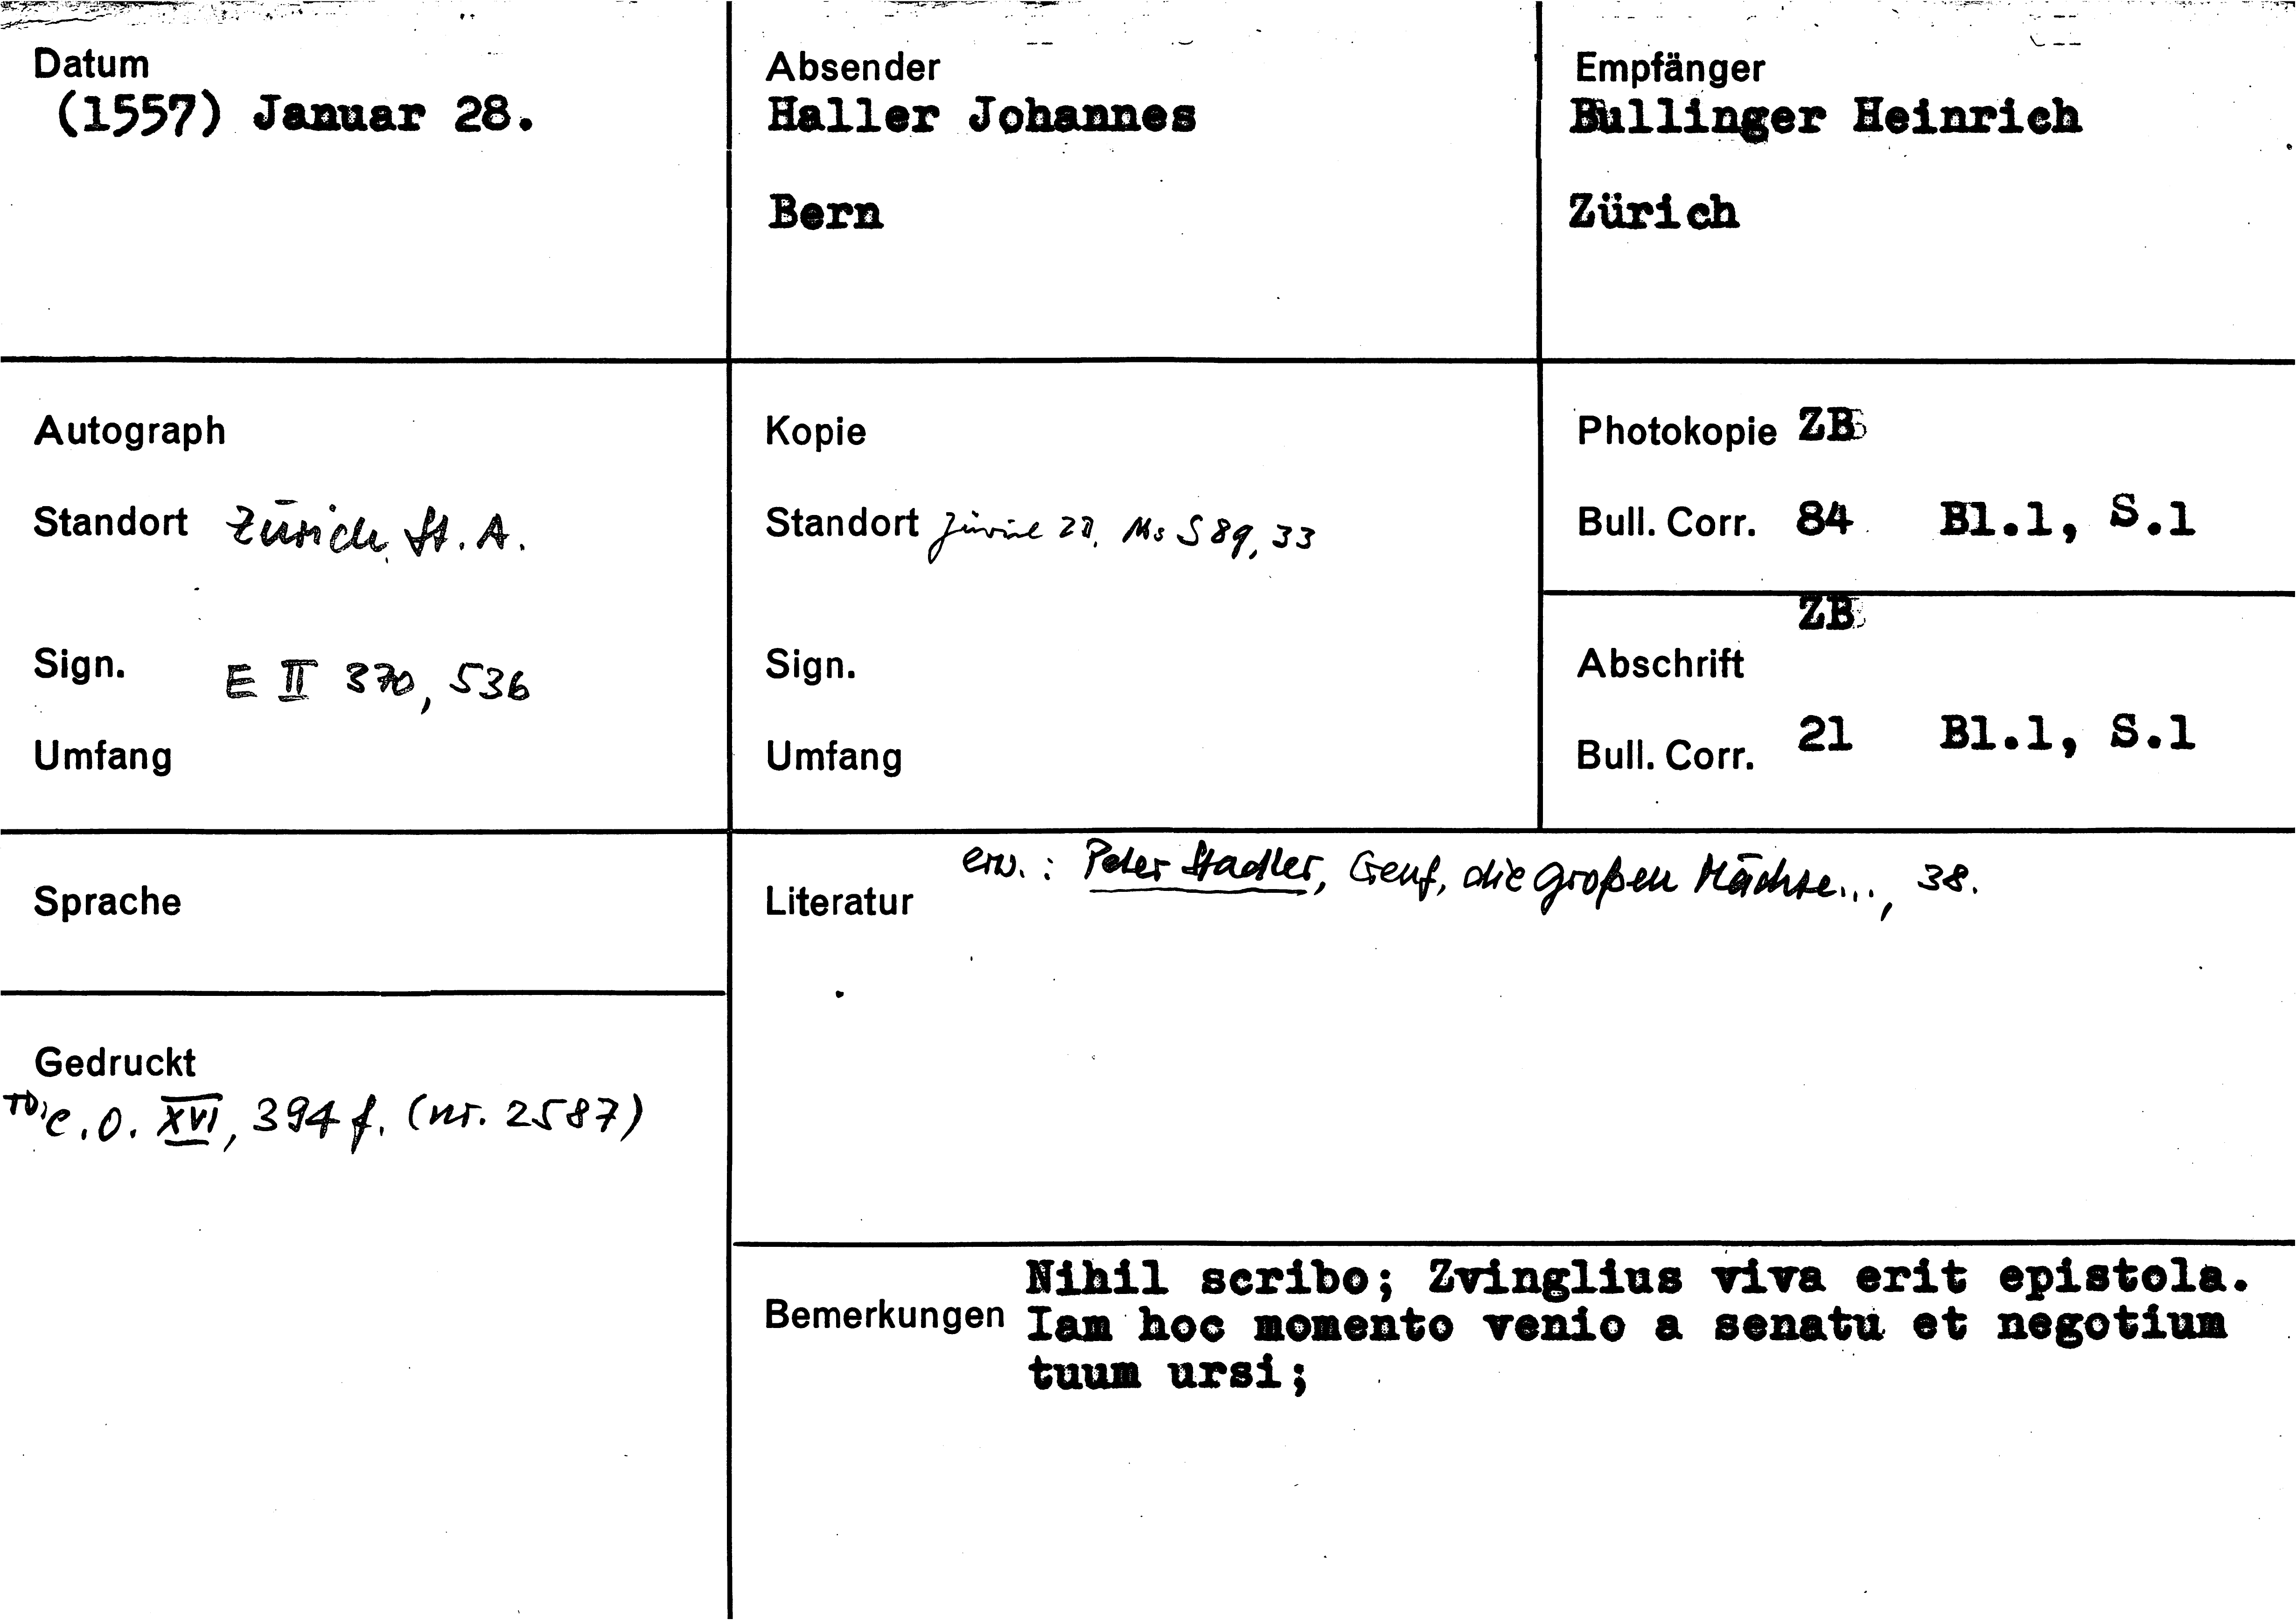 Datum
(1557) Januar 28.
Absender
Haller Johannes
Bern
Empfänger
Bullinger Heinrich
Zürich
Autograph
Standort Zürich St. A.
Sign. E II 370, 536
Umfang
Kopie
Standort Zürich ZB, Ms S 89, 33
Sign.
Umfang
Photokopie ZB
Bull. Corr. 84 Bl.1, S.1
ZB
Abschrift
Bull. Corr. 21 Bl.1, S.1
Sprache
Gedruckt
TD, C.O. XVI, 394 f. (nr. 2587)
Literatur erw.: Peter Stadler, Genf, die großen Mächte..., 38.
Bemerkungen
Nihil scribo; Zvinglius viva erit epistola.
Iam hoc momento venio a senatu et negotium
tuum ursi;